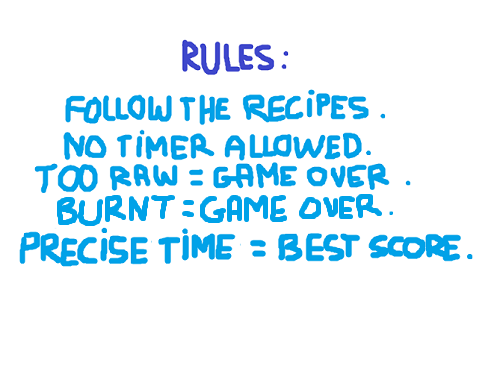 RULES:
FOLLOW THE RECIPES.
NO TIMER ALLOWED.
TOO RAW = GAME OVER.
BURNT = GAME OVER.
PRECISE TIME = BEST SCORE.